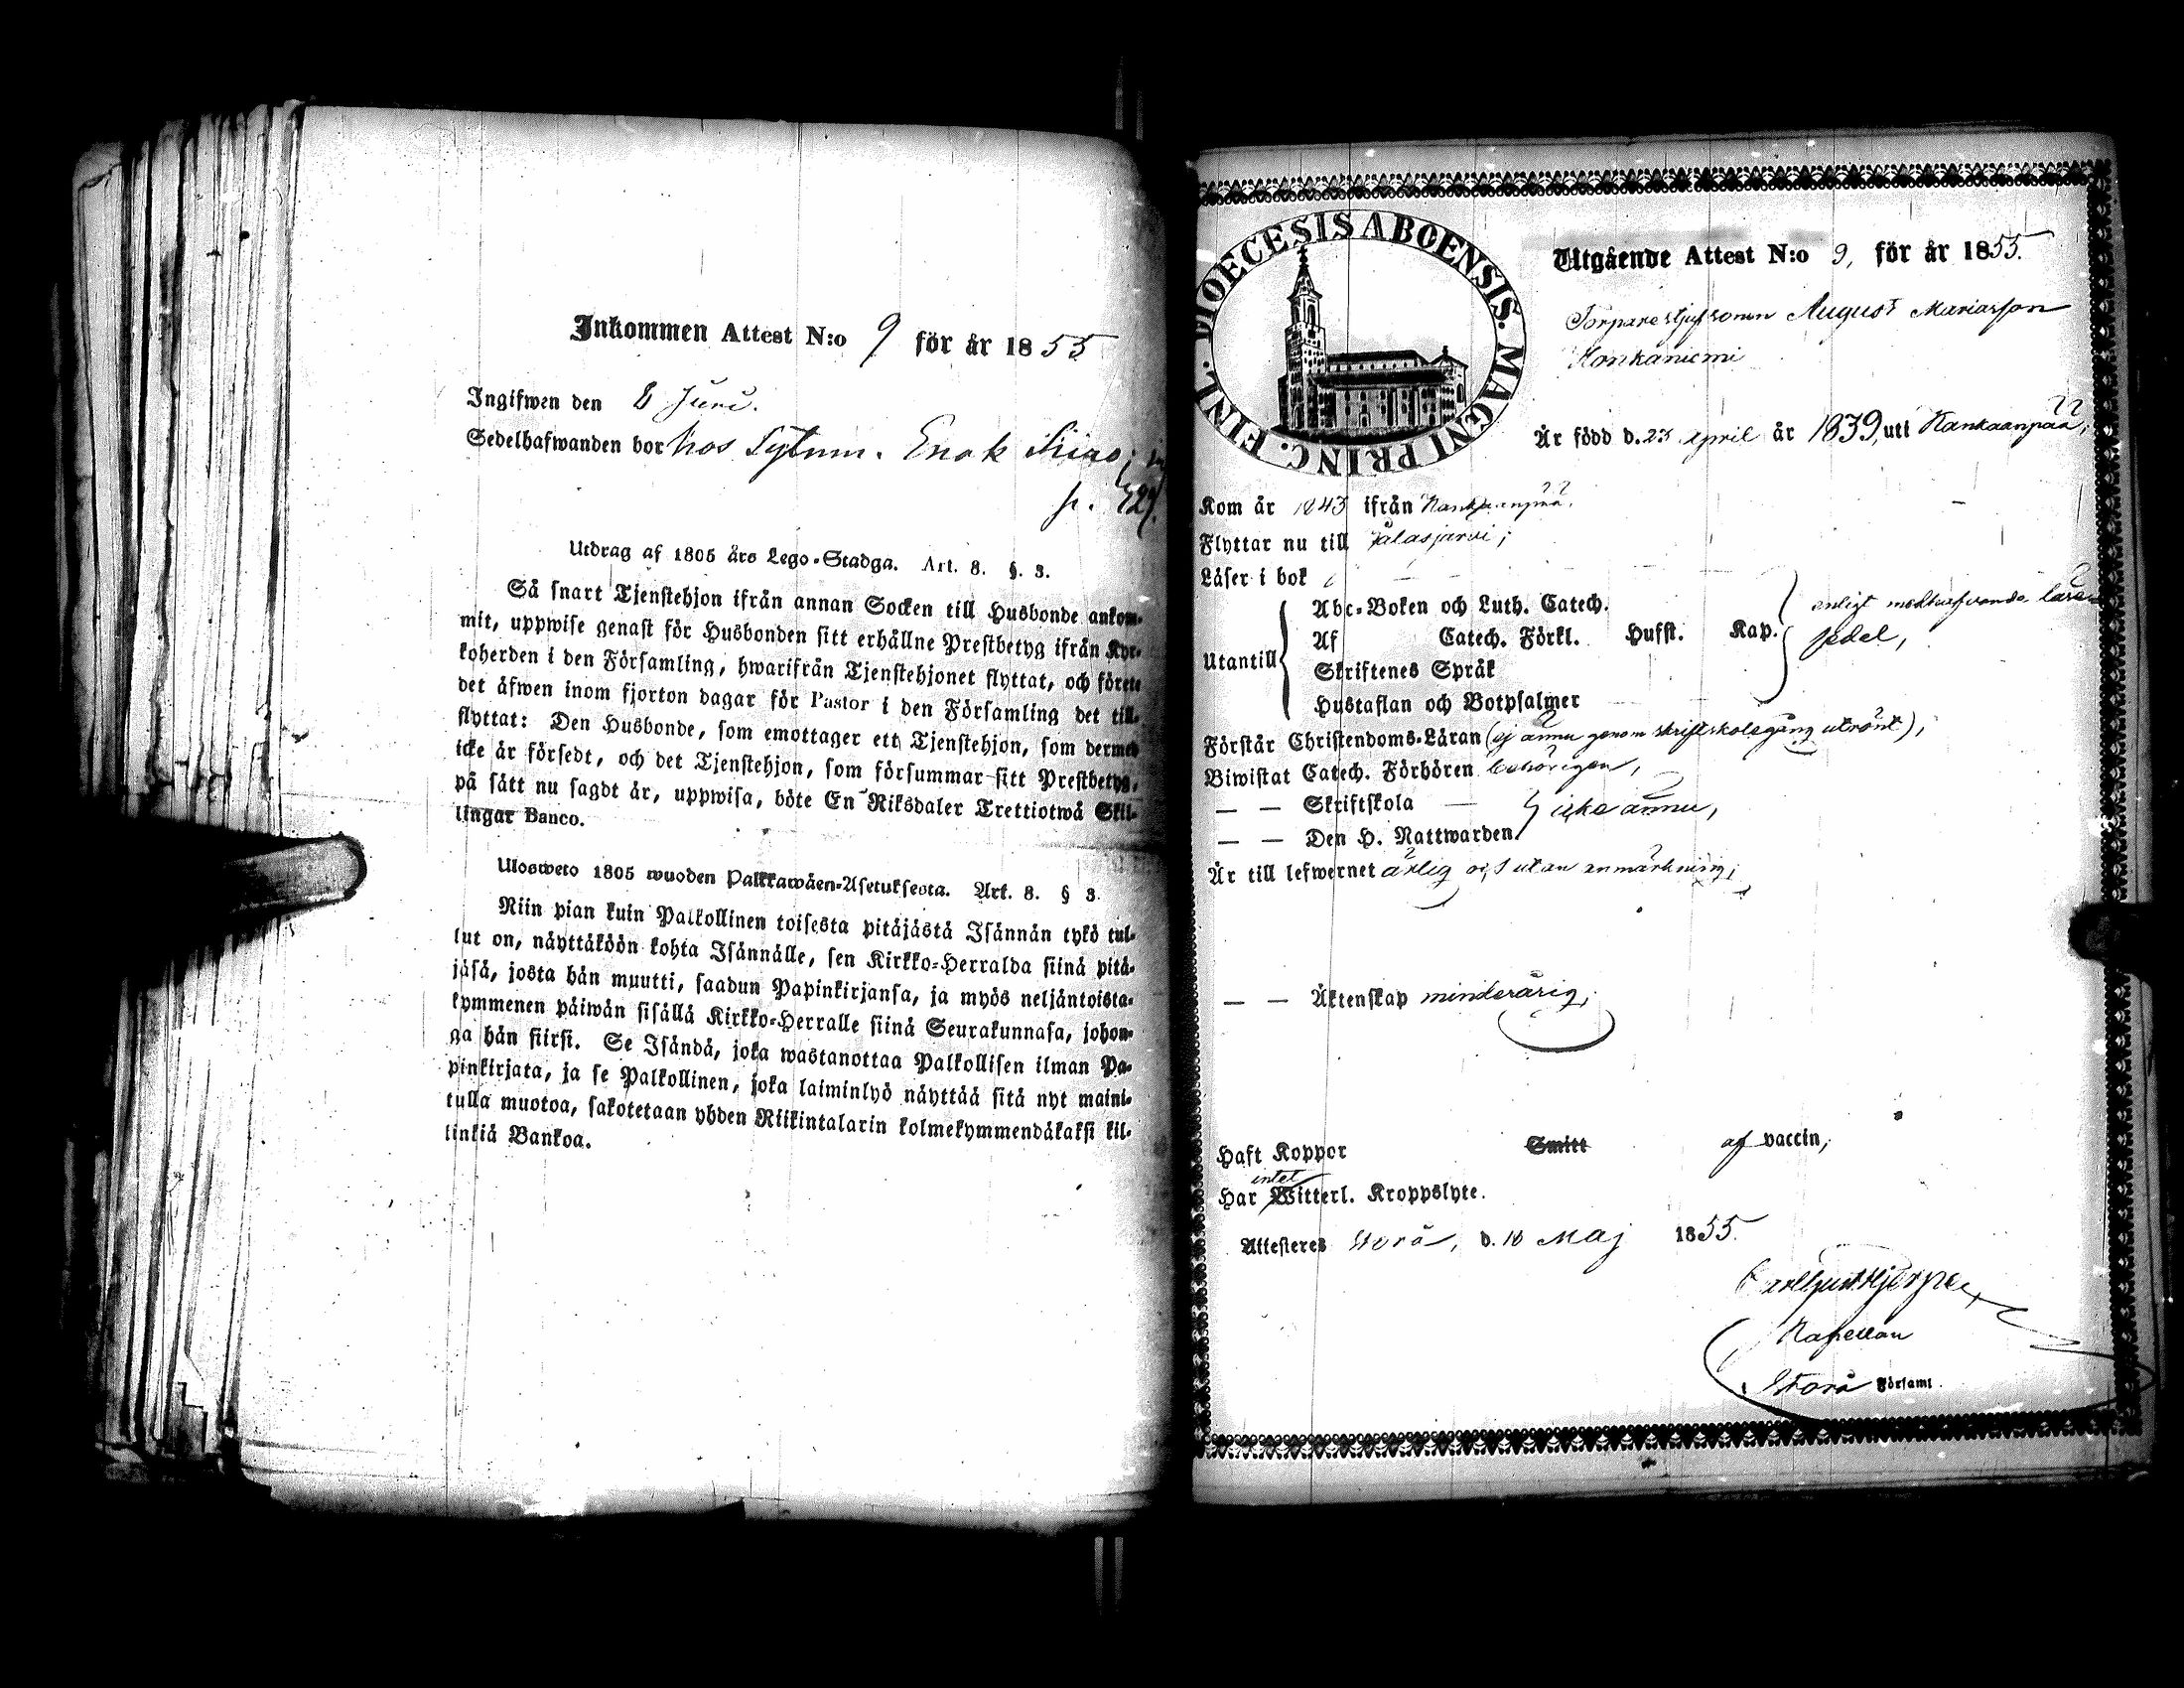 Inkommen Attest N:o 9 för år 1855
Ingifwen den 8 Juni.
Sedelhafwanden bor hos Sytnm. Enok
p. 427.
Utdrag af 1805 års Lego-Stadga. Art. 8. §. 3.
Så snart Tjenstehjon ifrån annan Socken till Husbonde ankom-
mit, uppwise genast för Husbonden sitt erhållne Prestbetyg ifrån Kyr-
koherden i den Församling, hwarifrån Tjenstehjonet flyttat, och förete
det äfwen inom fjorton dagar för Pastor i den Församling det till-
flyttat: Den Husbonde, som emottager ett Tjenstehjon, som dermed
icke är försedt, och det Tjenstehjon, som försummar sitt Prestbetyg,
på sätt nu sagdt är, uppwisa, böte En Riksdaler Trettiotwå Skil-
lingar Banco.
Ulosweto 1805 wuoden Palkkawäen-Asetuksesta. Art. 8. § 3.
Niin pian kuin Palkollinen toisesta pitäjästä Isännän tykö tul-
lut on, näyttäköön kohta Isännälle, sen Kirkko-Herralda siinä pitä-
jäsä, josta hän muutti, saadun Papinkirjansa, ja myös neljäntoista-
kymmenen päiwän sisällä Kirkko-Herralle siinä Seurakunnasa, johon-
ga hän siirsi. Se Isändä, joka wastanottaa Palkollisen ilman Pa-
pinkirjata, ja se Palkollinen, joka laiminlyö näyttää sitä nyt maini-
tulla muotoa, sakotetaan yhden Riikintalarin kolmekymmendäkaksi kil-
linkiä Bankoa.
FINL. DIOECESIS ABOENSIS. MAGNI PRINC.
Utgående Attest N:o 9, för år 1855.
Torparestjufsonen August Mariasson
Honkaniemi
Är född d. 23 April år 1839, uti Kankaanpää,
Kom år 1843 ifrån Kankaanpää.
Flyttar nu till Jalasjärvi;
Läser i bok
Utantill
Abc-Boken och Luth. Catech.
Af Catech. Förkl. Husst. Kap.
Skriftenes Språk
Hustaflan och Botpsalmer
enligt medhafvande läse-
sedel,
Förstår Christendoms-Läran (ej ännu genom skriftskolegång utrönt),
Biwistat Catech. Förhören behörigen,
— — Skriftskola — icke ännu,
— — Den H. Nattwarden
Är till lefwernet ärlig och utan anmärkning;
— — Äktenskap minderårig;
Haft Koppor Smitt af vaccin,
Har intet Witterl. Kroppslyte.
Attesteras Storå, d. 18 Maj 1855.
Kapellan
Storå Församl.